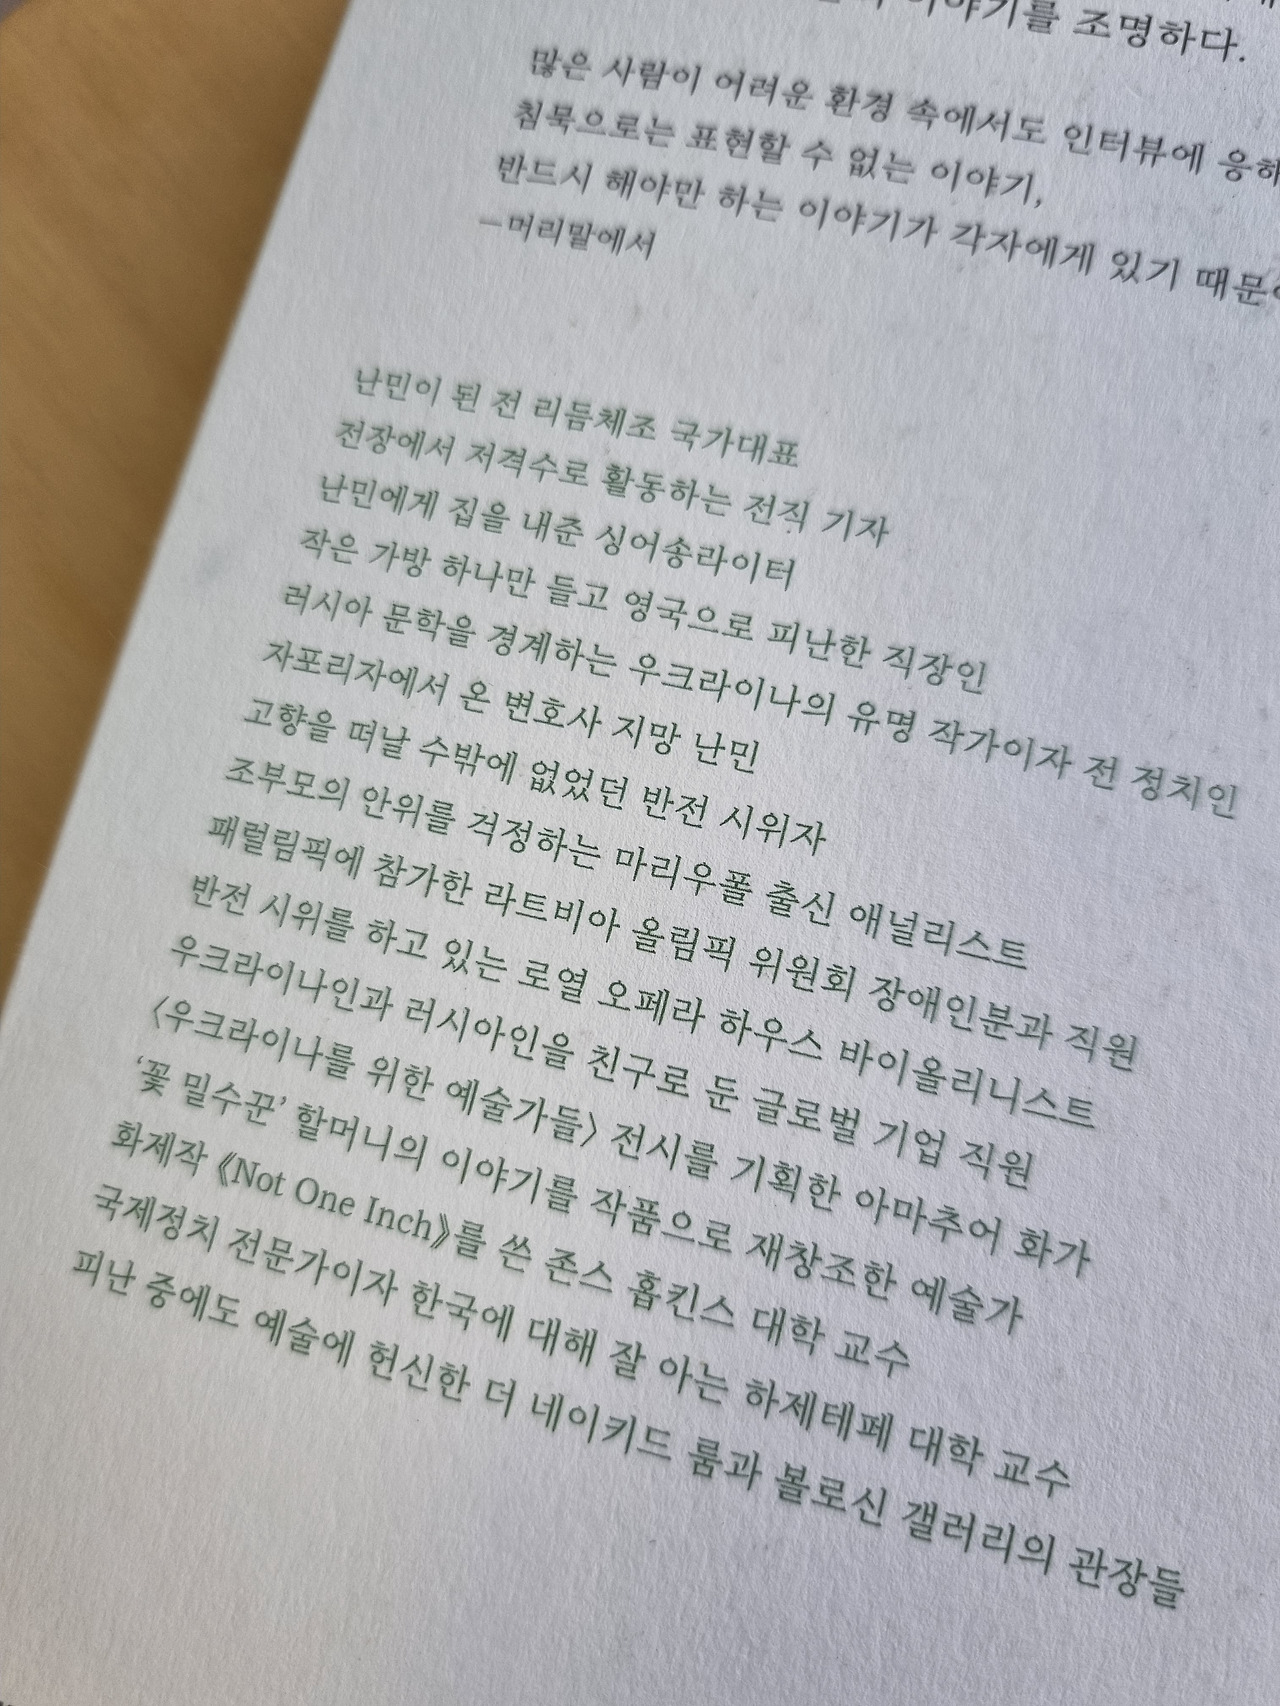 이야기를 조명하다.
많은 사람이 어려운 환경 속에서도 인터뷰에
침묵으로는 표현할 수 없는 이야기,
반드시 해야만 하는 이야기가 각자에게 있기
—머리말에서
난민이 된 전 리듬체조 국가대표
전장에서 저격수로 활동하는 전직 기자
난민에게 집을 내준 싱어송라이터
작은 가방 하나만 들고 영국으로 피난한 직장인
러시아 문학을 경계하는 우크라이나의 유명 작가이자 전 정치인
자포리자에서 온 변호사 지망 난민
고향을 떠날 수밖에 없었던 반전 시위자
조부모의 안위를 걱정하는 마리우폴 출신 애널리스트
패럴림픽에 참가한 라트비아 올림픽 위원회 장애인분과 직원
반전 시위를 하고 있는 로열 오페라 하우스 바이올리니스트
우크라이나인과 러시아인을 친구로 둔 글로벌 기업 직원
〈우크라이나를 위한 예술가들〉 전시를 기획한 아마추어 화가
‘꽃 밀수꾼’ 할머니의 이야기를 작품으로 재창조한 예술가
화제작 《Not One Inch》를 쓴 존스 홉킨스 대학 교수
국제정치 전문가이자 한국에 대해 잘 아는 하제테페 대학 교수
피난 중에도 예술에 헌신한 더 네이키드 룸과 볼로신 갤러리의 관장들